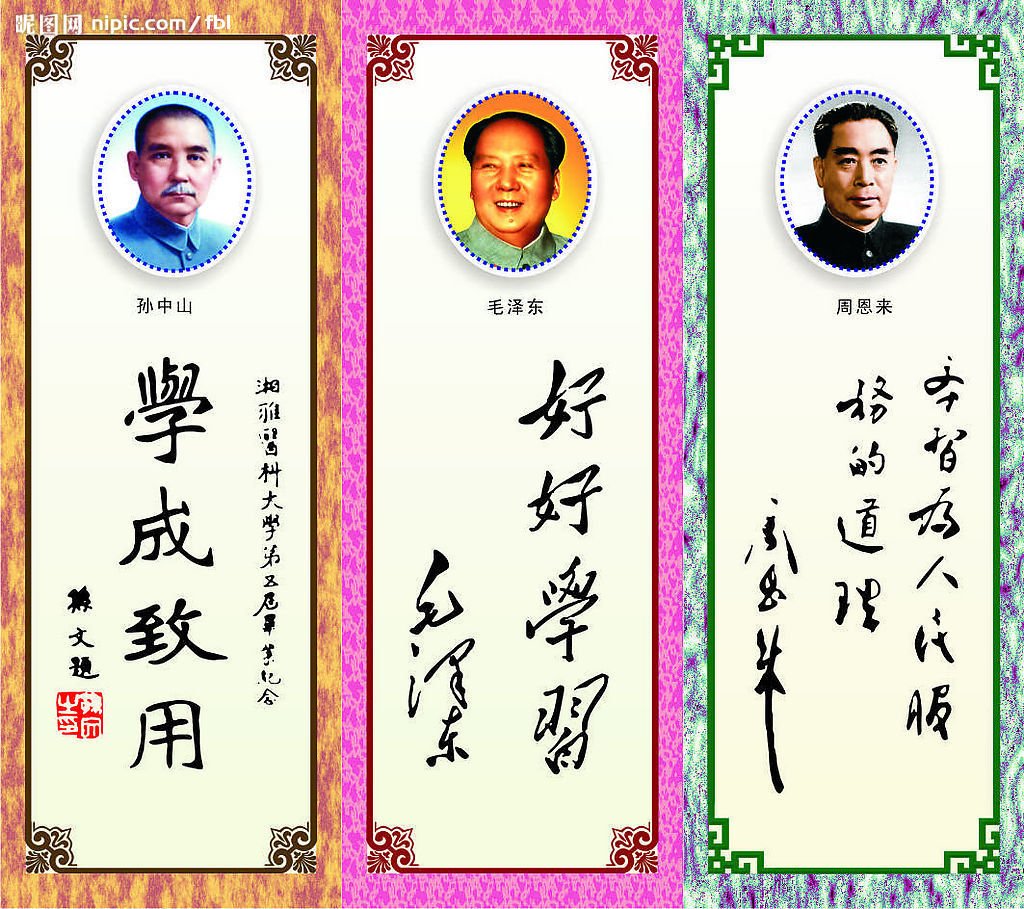 昵图网 nipic.com/fbl
孙中山
湘雅醫科大學第五屆畢業紀念
學成致用
孫文題
毛泽东
好好學習
毛澤东
周恩来
学習为人民服
務的道理
周恩来